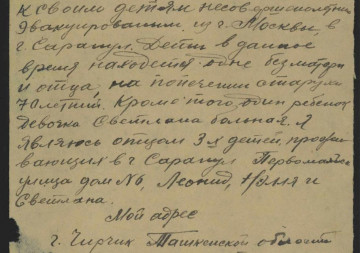 к своим детям несовершеннолетним
эвакуированным, из г. Москвы, в
г. Сарапул. Дети в данное
время находятся одне без матери
и отца, на попечении старухи
70 летний. Кроме того, один ребенок
девочка Светлана больная. Я
являюсь отцом 3х детей, прожи-
вающих в г. Сарапул Первомайская
улица дом №6, Леонид, и
Светлана.
Мой адрес
г. Чирчик Ташкенской области